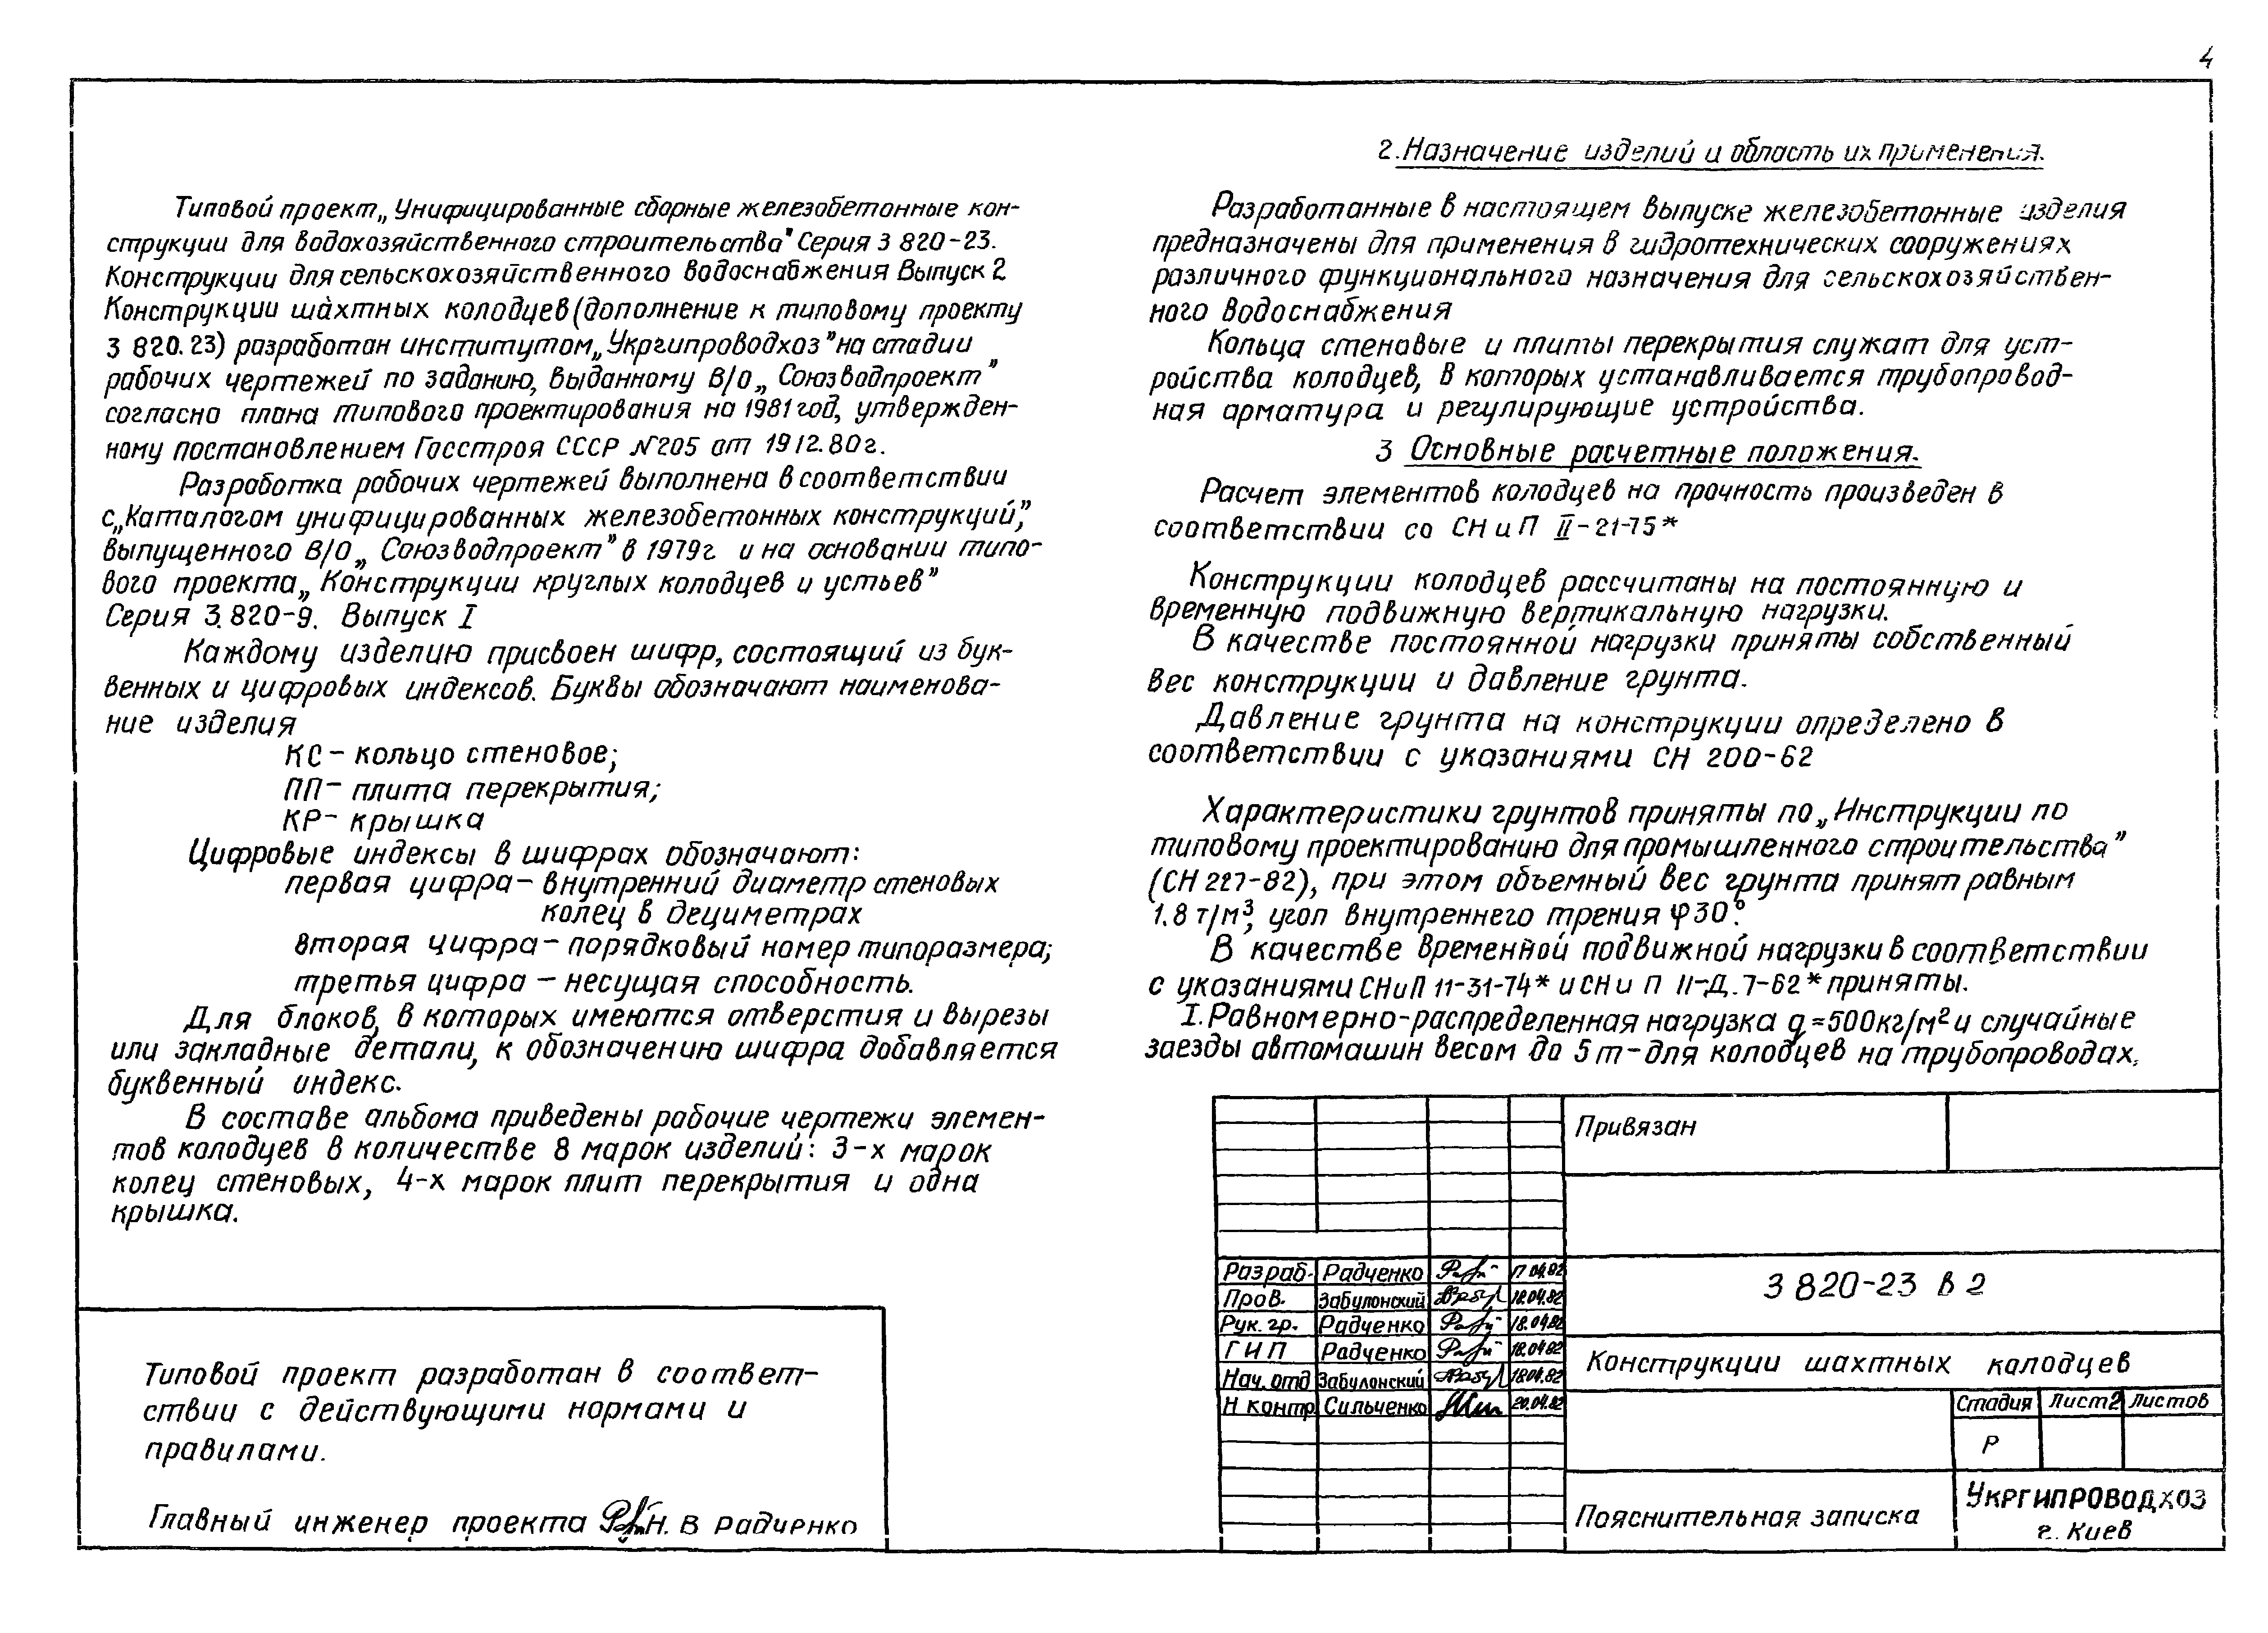 4
Типовой проект „Унифицированные сборные железобетонные кон-
струкции для водохозяйственного строительства" Серия 3 820-23.
Конструкции для сельскохозяйственного водоснабжения Выпуск 2
Конструкции шахтных колодцев (дополнение к типовому проекту
3 820.23) разработан институтом „Укргипроводхоз" на стадии
рабочих чертежей по заданию, выданному В/О „Союзводпроект"
согласно плана типового проектирования на 1981 год, утвержден-
ному постановлением Госстроя СССР №205 от 19 12.80г.
Разработка рабочих чертежей выполнена в соответствии
с „Каталогом унифицированных железобетонных конструкций",
выпущенного В/О „Союзводпроект" в 1979г и на основании типо-
вого проекта „Конструкции круглых колодцев и устьев"
Серия 3.820-9. Выпуск I
Каждому изделию присвоен шифр, состоящий из бук-
венных и цифровых индексов. Буквы обозначают наименова-
ние изделия
КС - кольцо стеновое;
ПП - плита перекрытия;
КР - крышка
Цифровые индексы в шифрах обозначают:
первая цифра - внутренний диаметр стеновых
колец в дециметрах
вторая цифра - порядковый номер типоразмера;
третья цифра - несущая способность.
Для блоков, в которых имеются отверстия и вырезы
или закладные детали, к обозначению шифра добавляется
буквенный индекс.
В составе альбома приведены рабочие чертежи элемен-
тов колодцев в количестве 8 марок изделий: 3-х марок
колец стеновых, 4-х марок плит перекрытия и одна
крышка.
Типовой проект разработан в соответ-
ствии с действующими нормами и
правилами.
Главный инженер проекта Н. В Радченко
2. Назначение изделий и область их применения.
Разработанные в настоящем выпуске железобетонные изделия
предназначены для применения в гидротехнических сооружениях
различного функционального назначения для сельскохозяйствен-
ного водоснабжения
Кольца стеновые и плиты перекрытия служат для уст-
ройства колодцев, в которых устанавливается трубопровод-
ная арматура и регулирующие устройства.
3 Основные расчетные положения.
Расчет элементов колодцев на прочность произведен в
соответствии со СНиП II-21-75*
Конструкции колодцев рассчитаны на постоянную и
временную подвижную вертикальную нагрузки.
В качестве постоянной нагрузки приняты собственный
вес конструкции и давление грунта.
Давление грунта на конструкции определено в
соответствии с указаниями СН 200-62
Характеристики грунтов приняты по „Инструкции по
типовому проектированию для промышленного строительства"
(СН 227-82), при этом объемный вес грунта принят равным
1.8 т/м³, угол внутреннего трения φ 30°.
В качестве временной подвижной нагрузки в соответствии
с указаниями СНиП 11-31-74* и СН и П II-Д.7-62* приняты.
I. Равномерно-распределенная нагрузка q=500кг/м² и случайные
заезды автомашин весом до 5т - для колодцев на трубопроводах.
Привязан
Разраб. Радченко 17 04.82
Пров. Забулонский 18.04.82
Рук. гр. Радченко 18.04.82
ГИП Радченко 18.04.82
Нач. отд Забулонский 18.04.82
Н контр Сильченко 20.04.82
3 820-23 в 2
Конструкции шахтных колодцев
Стадия Лист 2 Листов
Р
Пояснительная записка
Укргипроводхоз
г. Киев